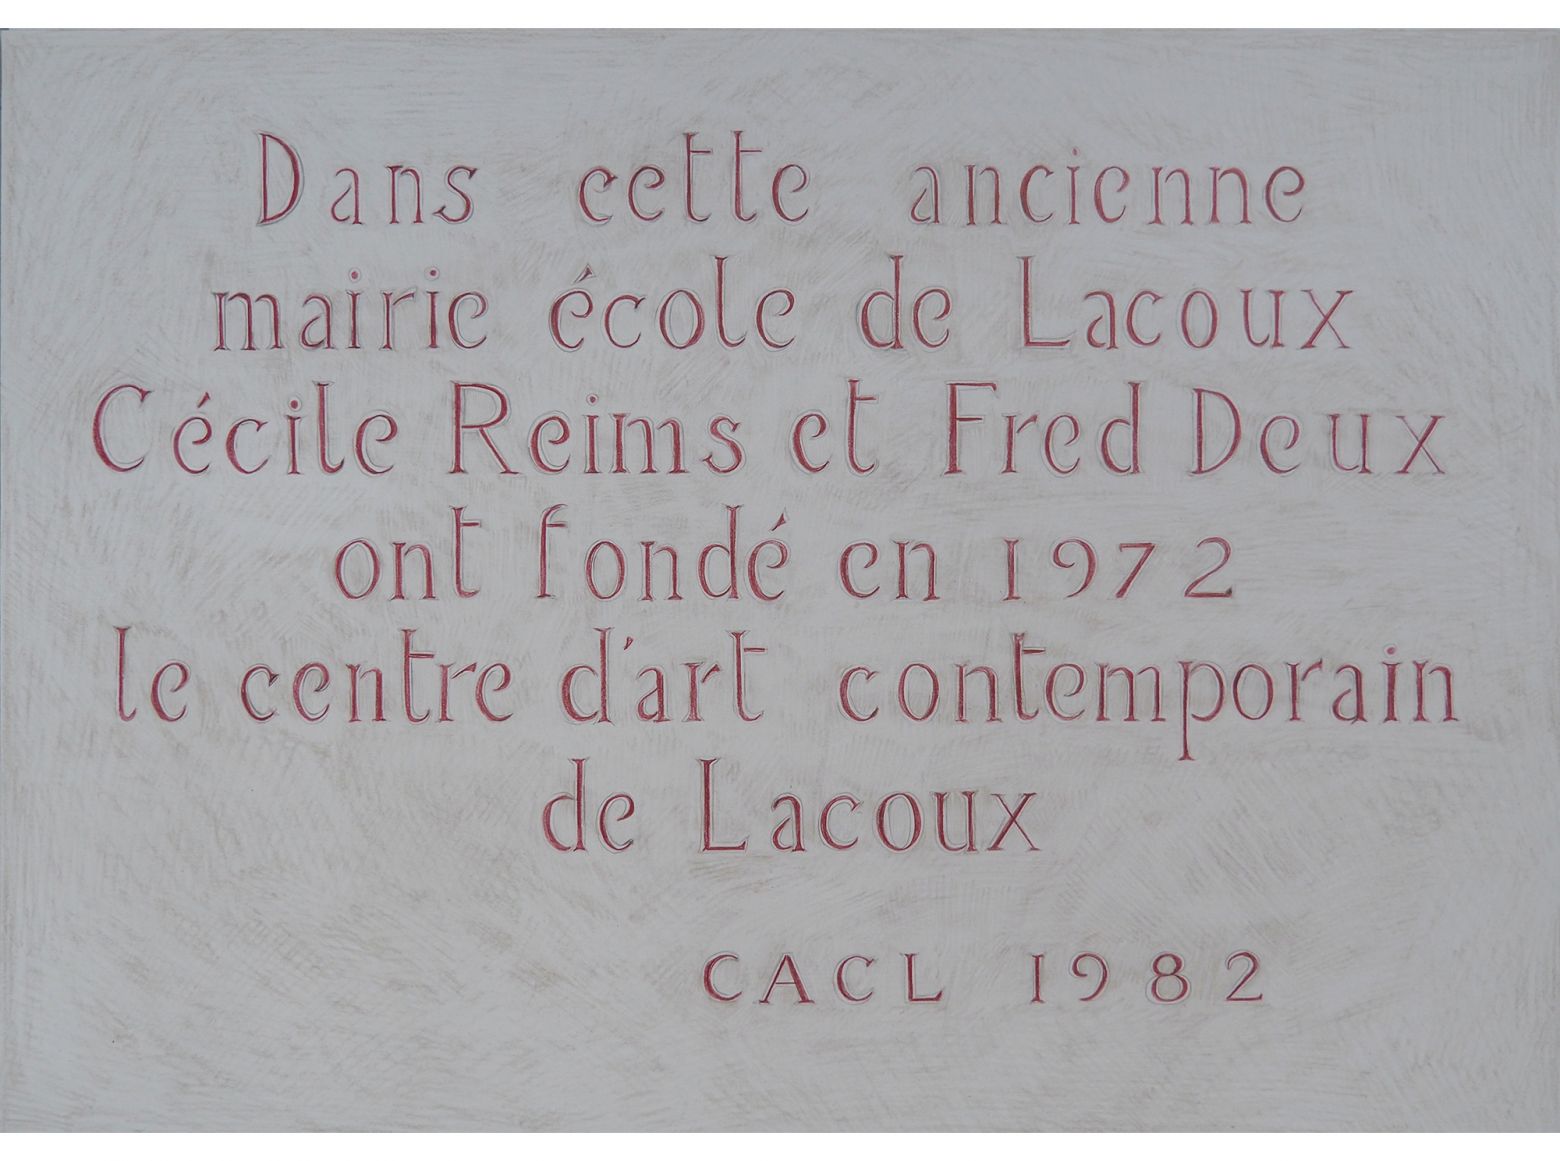 Dans cette ancienne
mairie école de Lacoux
Cécile Reims et Fred Deux
ont fondé en 1972
le centre d'art contemporain
de Lacoux
CACL 1982